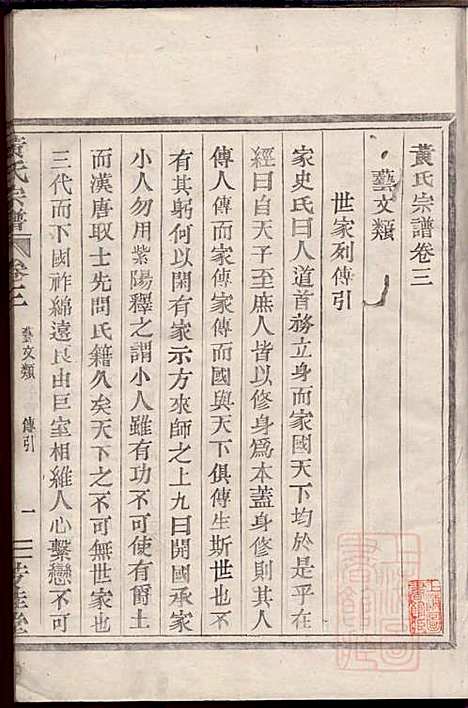 黃氏宗譜卷三
藝文類
世家列傳引
家史氏曰人道首務立身而家國天下均於是乎在
經曰自天子至庶人皆以修身為本蓋身修則其人
傳人傳而家傳家傳而國與天下俱傳生斯世也不
有其躬何以閑有家示方來師之上九曰開國承家
小人勿用紫陽釋之謂小人雖有功不可使有爵土
而漢唐取士先問氏籍久矣天下之不可無世家也
三代而下國祚綿遠良由巨室相維人心繫戀不可
黃氏宗譜
藝文類
傳引
一